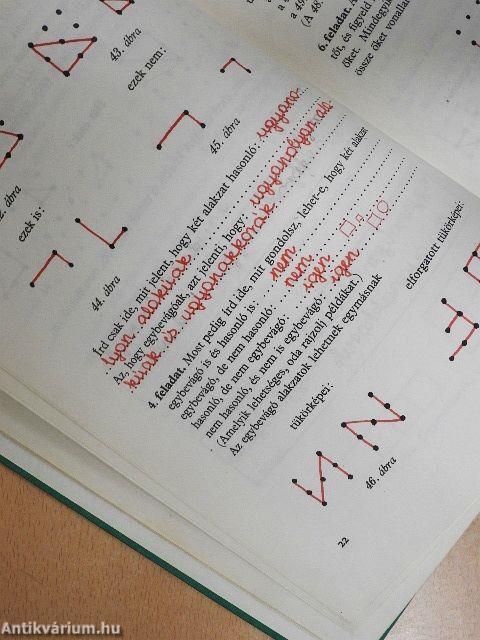 a 49
(A 48
6. feladat. A
tőt, és figyeld
őket. Mindegyik
össze őket vonallal
43. ábra
ezek nem:
45. ábra
ábra
ezek is:
44. ábra
Írd csak ide, mit jelent, hogy két alakzat hasonló: ugyano-
lyan alakúak
Az, hogy egybevágóak, az jelenti, hogy: ugyanolyan ala-
kúak is ugyanakkorák
4. feladat. Most pedig írd ide, mit gondolsz, lehet-e, hogy két alakzat
egybevágó is és hasonló is:
egybevágó, de nem hasonló: nem
hasonló, de nem egybevágó: igen
nem hasonló, és nem is egybevágó: igen
(Amelyik lehetséges, oda rajzolj példákat.)
Az egybevágó alakzatok lehetnek egymásnak
tükörképei:
elforgatott tükörképei:
46. ábra
22
Antikvárium.hu